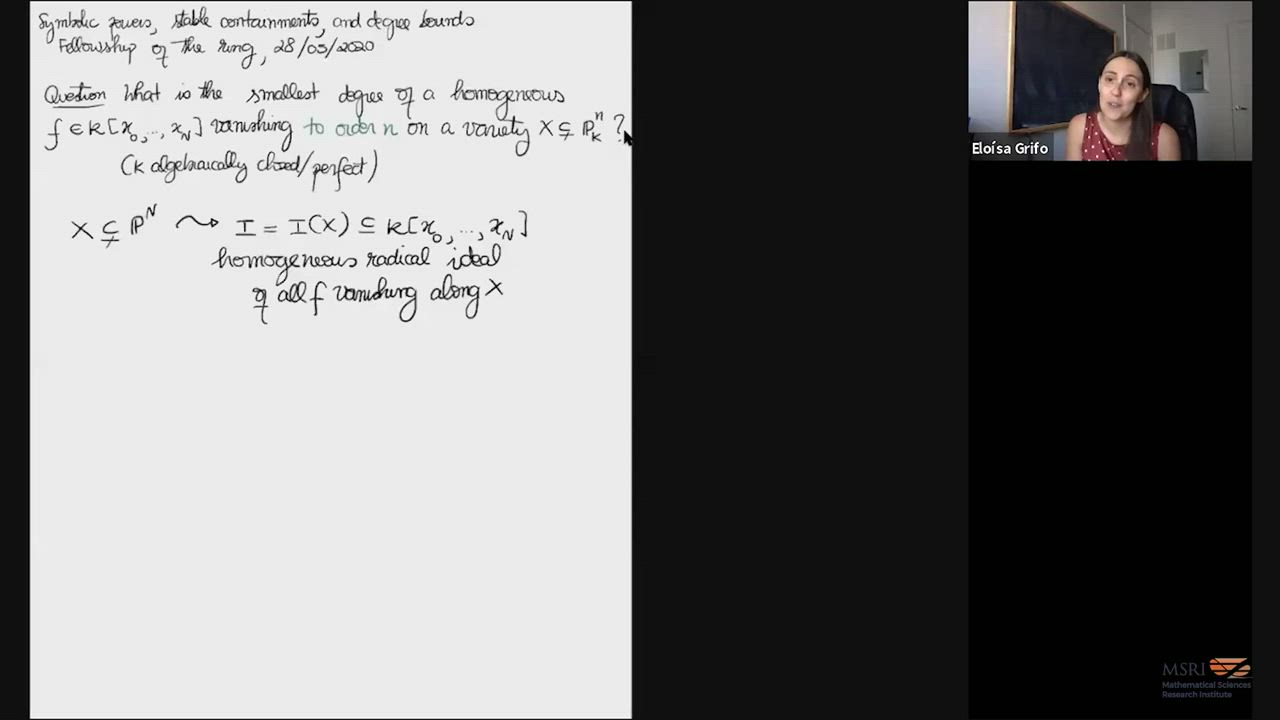 Symbolic powers, stable containments, and degree bounds
Fellowship of the ring, 28/05/2020
Question What is the smallest degree of a homogeneous
f ∈ k[x₀, ..., x_N] vanishing to order n on a variety X ⊊ ℙⁿ_k ?
(k algebraically closed/perfect)
X ⊊ ℙᴺ ⇝ I = I(X) ⊆ k[x₀, ..., x_N]
homogeneous radical ideal
of all f vanishing along X
Eloísa Grifo
MSRI
Mathematical Sciences
Research Institute